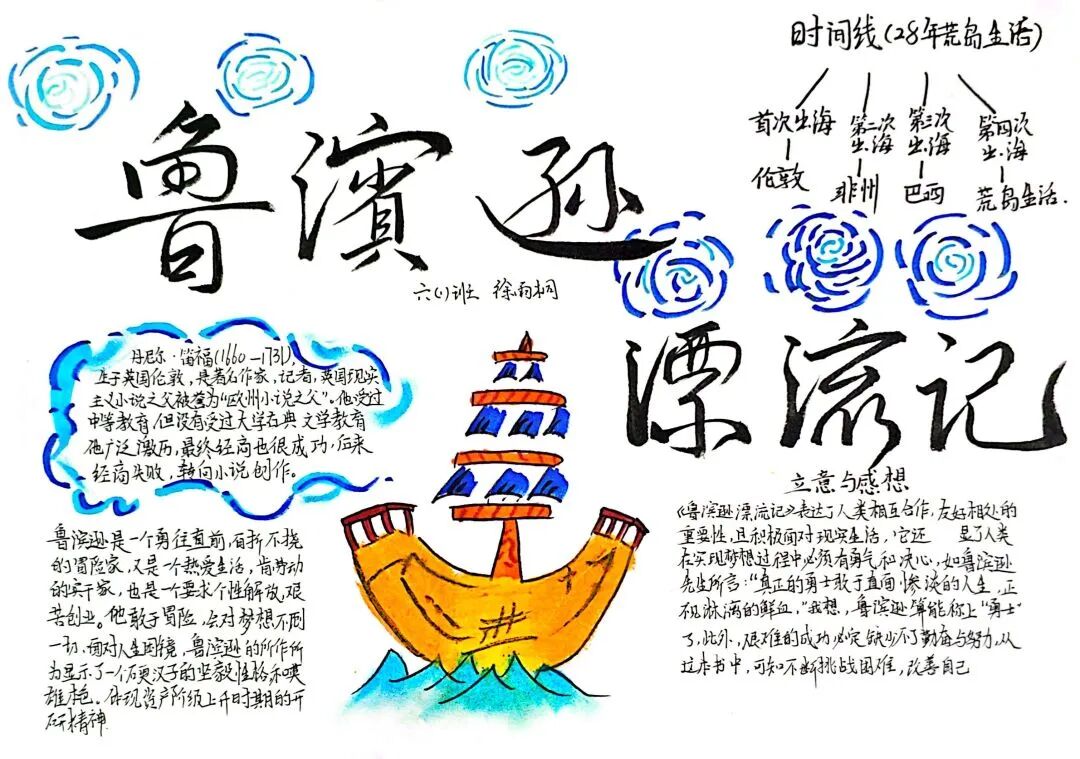 鲁滨逊
漂流记
六(1)班 徐雨桐
时间线(28年荒岛生活)
首次出海
伦敦
第二次
出海
非州
第三次
出海
巴西
第四次
出海
荒岛生活.
丹尼尔·笛福(1660—1731),
生于英国伦敦,是著名作家,记者,英国现实
主义小说之父被誉为"欧州小说之父"。他受过
中等教育,但没有受过大学古典文学教育
他广泛游历,最终经商也很成功,后来
经商失败,转向小说创作。
鲁滨逊是一个勇往直前,百折不挠
的冒险家,又是一个热爱生活,肯劳动
的实干家,也是一个要求个性解放,艰
苦创业。他敢于冒险,会对梦想不同
一切,面对人生困境,鲁滨逊的所作所
为显示了一个硬汉子的坚毅性格和英
雄本色。体现资产阶级上升时期的开
研精神
立意与感想
《鲁滨逊漂流记》表达了人类相互合作,友好相处的
重要性,且积极面对现实生活,它还 显了人类
在实现梦想过程中必须有勇气和决心,如鲁滨逊
先生所言:"真正的勇士敢于直面惨淡的人生,正
视淋漓的鲜血,"我想,鲁滨逊算能称上"勇士"
了,此外,艰难的成功必定缺少不了勤奋与努力,从
这本书中,可知不断挑战困难,改善自己